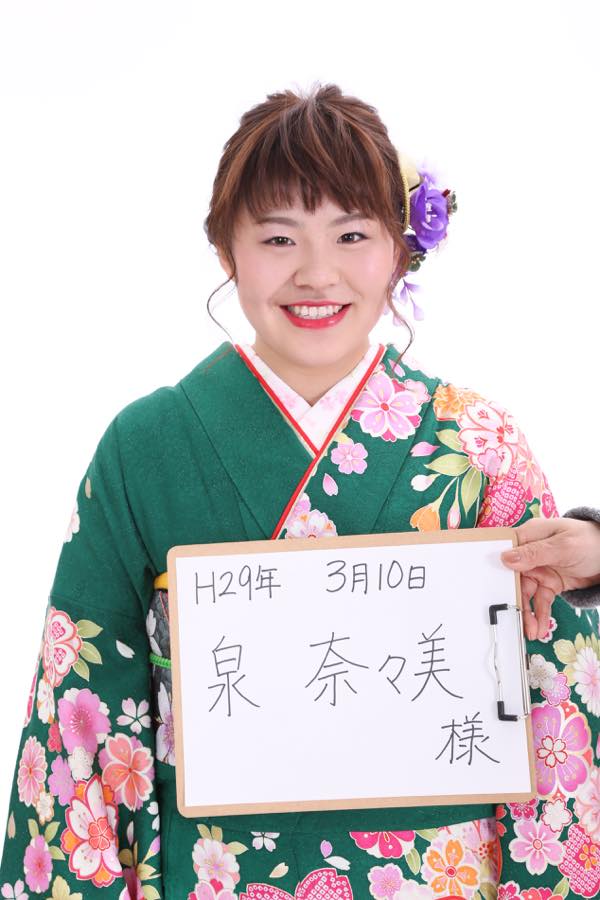 H29年 3月10日
泉 奈々美
様